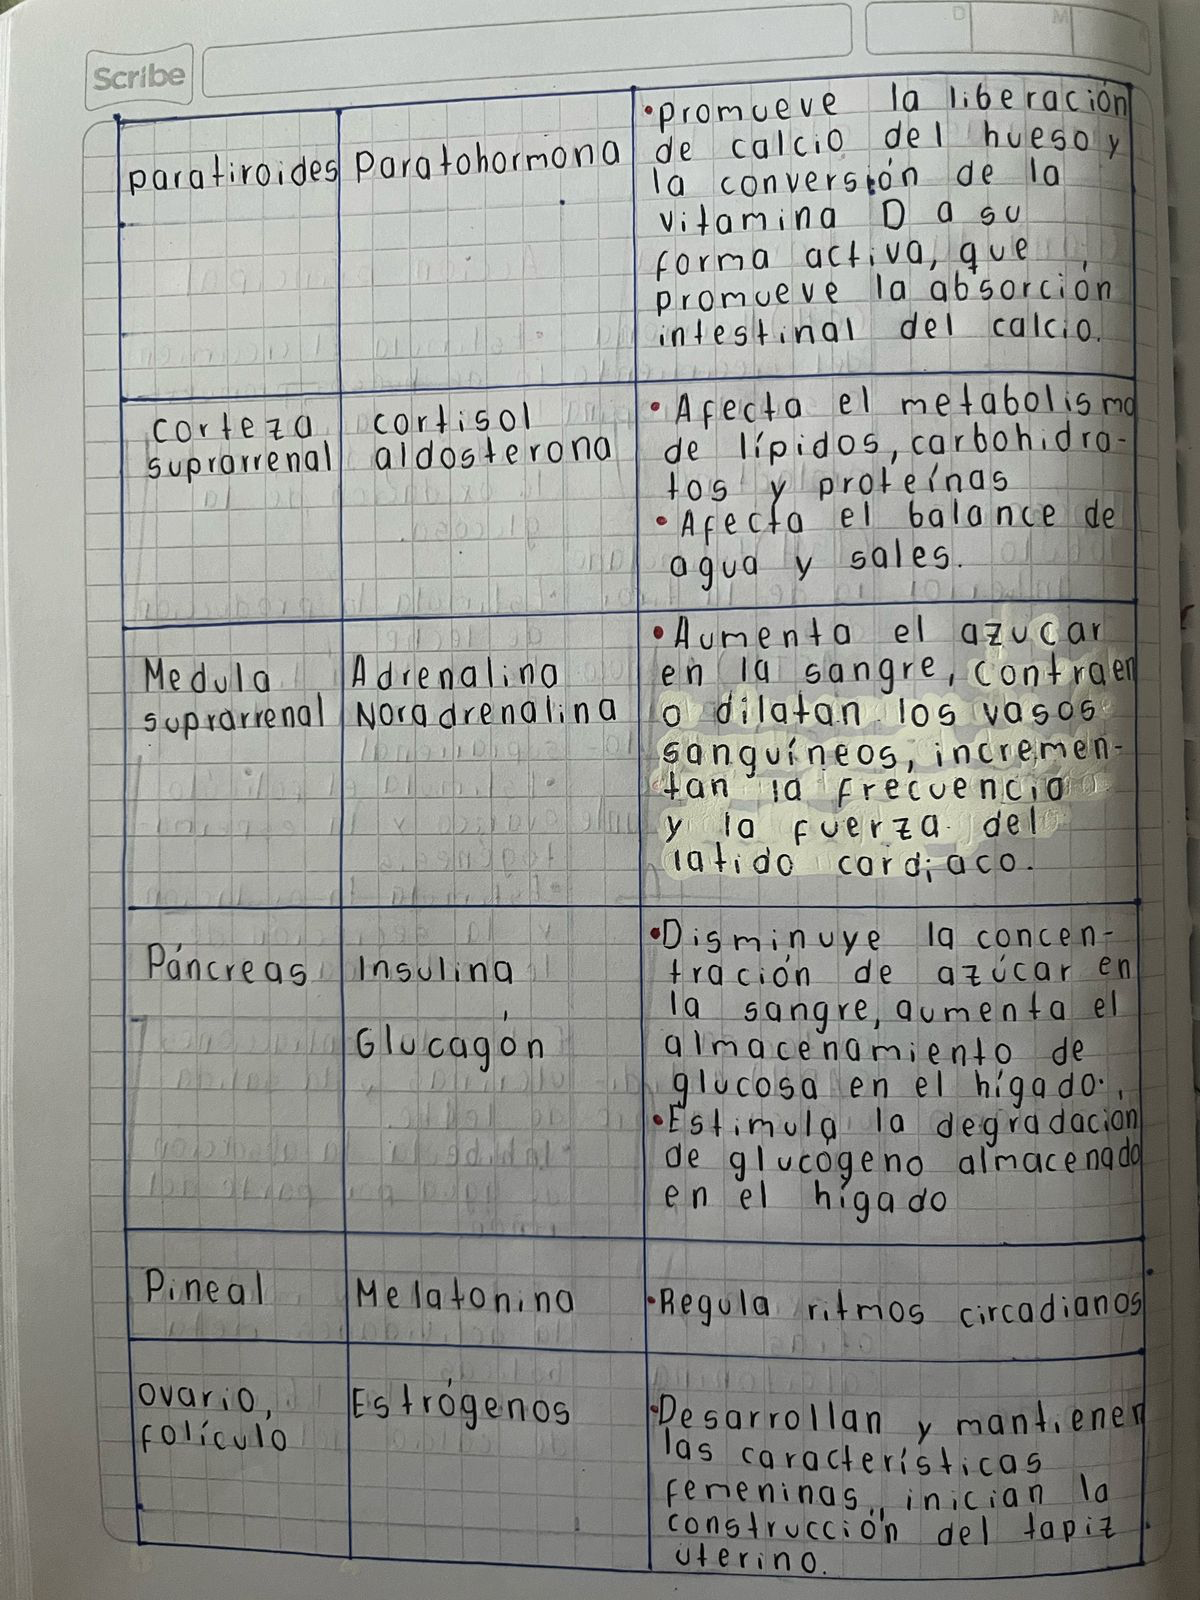 Scribe
D M
Paratiroides
Paratohormona
•Promueve la liberación
de calcio del hueso y
la conversión de la
vitamina D a su
forma activa, que
promueve la absorción
intestinal del calcio.
corteza
suprarrenal
cortisol
aldosterona
• Afecta el metabolismo
de lípidos, carbohidra-
tos y proteínas
• Afecta el balance de
agua y sales.
Medula
suprarrenal
Adrenalina
Noradrenalina
• Aumenta el azucar
en la sangre, contraen
o dilatan los vasos
sanguíneos, incremen-
tan la frecuencia
y la fuerza del
latido cardiaco.
Páncreas
Insulina
Glucagón
•Disminuye la concen-
tración de azúcar en
la sangre, aumenta el
almacenamiento de
glucosa en el hígado.
•Estimula la degradación
de glucógeno almacenado
en el hígado
Pineal
Melatonina
•Regula ritmos circadianos
ovario,
folículo
Estrógenos
•Desarrollan y mantienen
las características
femeninas, inician la
construcción del tapiz
uterino.